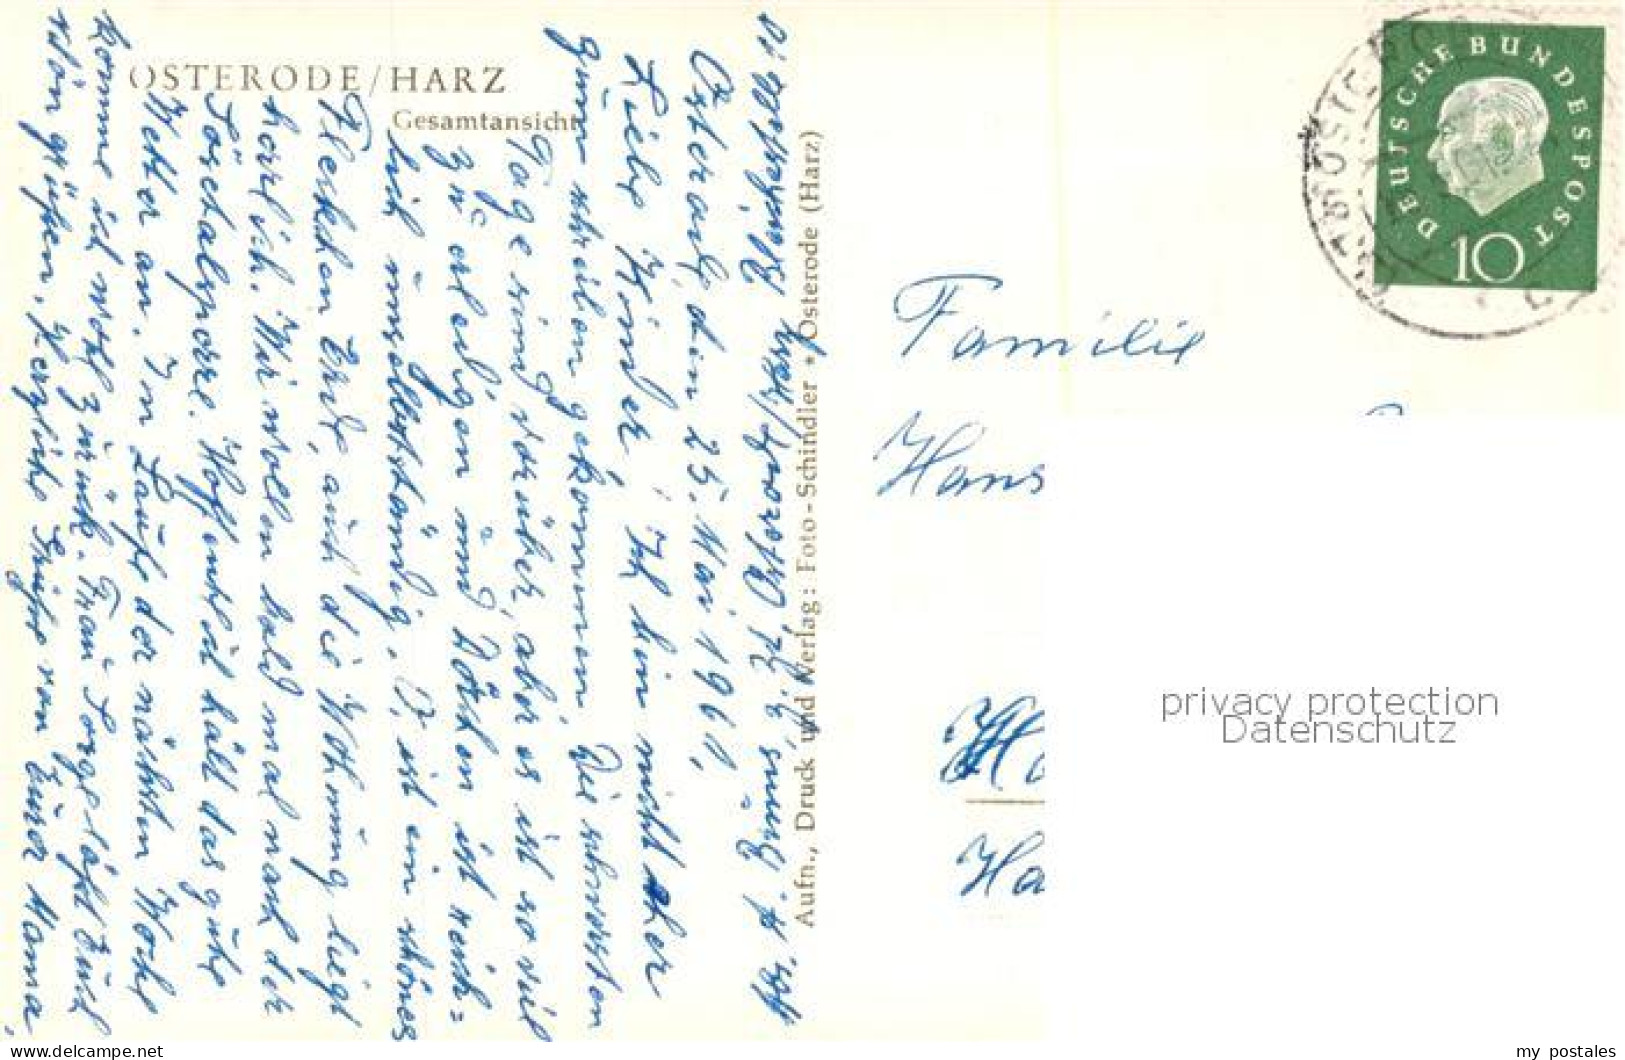 OSTERODE/HARZ
Gesamtansicht
z. Zt. Osterode/Harz
Osterode, den 25. Mai 1961,
Liebe Kinder, Ich bin nicht eher
zum schreiben gekommen. Die schwersten
Tage sind vorüber, aber es ist so viel
zu erledigen und Dörchen ist reich=
lich unselbständig. O, ist ein schönes
Fleckchen Erde, auch die Wohnung liegt
herrlich. Wir wollen bald mal nach der
Sösetalsperre. Hoffentlich hält das gute
Wetter an. Im Laufe der nächsten Woche
komme ich wohl zurück. Frau Sorge läßt Euch
schön grüßen. Herzliche Grüße von Eurer Mama,
Aufn., Druck und Verlag: Foto-Schindler • Osterode (Harz)
DEUTSCHE BUNDESPOST
10
Familie
Hans
Ha
privacy protection
Datenschutz
delcampe.net
my_postales